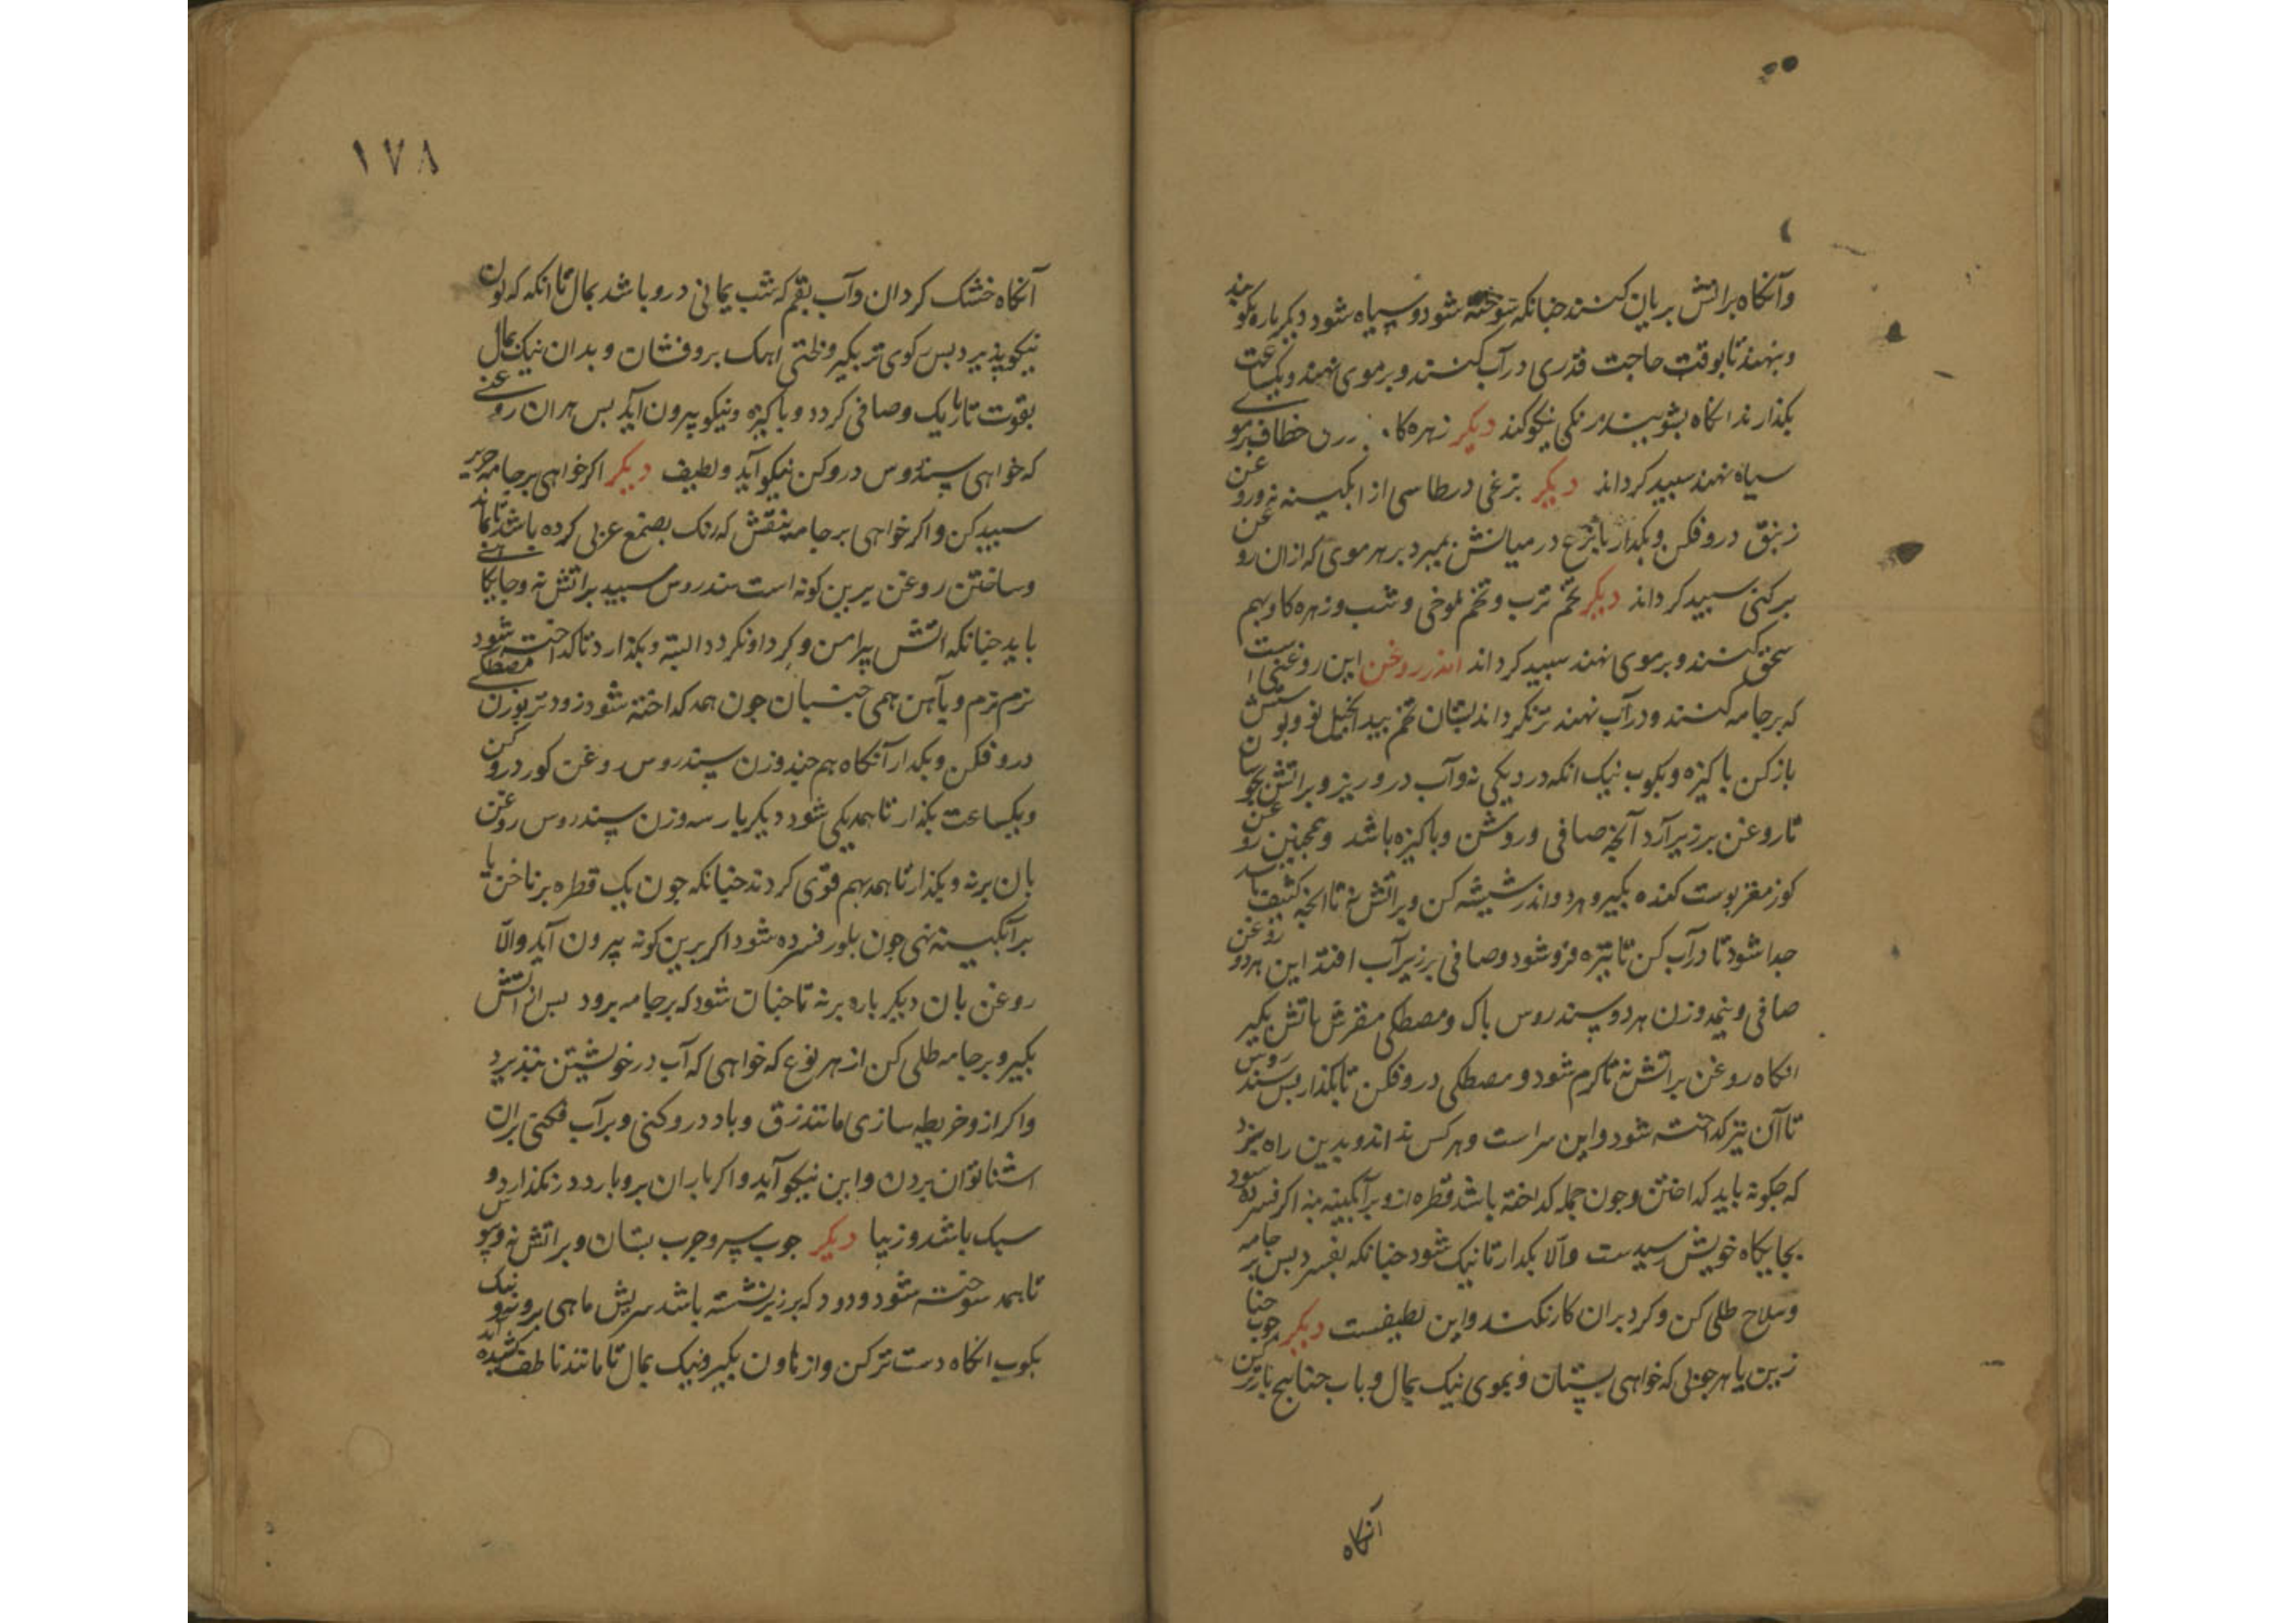 وآنکاه براتش بریان کنند جنانکه سوخته شود وسیاه شود دیکرباره بکوبند
وبنهند تا بوقت حاجت قدری در آب کنند و بر موی نهند ویکساعت
بکذارند انکاه بشویند رنکی نیکو کند دیکر زهره کا خطاف برموی
سیاه نهند سبید کرداند دیکر بزغی در طاسی از ابکینه نه وروغن
زنبق دروفکن وبکذار تا بزغ در میانش بمیرد بر هر موی که ازان روغن
برکنی سبید کرداند دیکر تخم ترب وتخم لموخی وشب وزهره کاو بهم
سحق کنند وبر موی نهند سبید کرداند اندر روغن این روغنی است
که بر جامه کنند ودر آب نهند تر نکرداند بستان تخم بید انجیل نو وبوستش
باز کن باکیزه وبکوب نیک انکه در دیکی نه وآب در وریز وبراتش بجوشان
تا روغن برزبر آرد آنجه صافی وروشن وباکیزه باشد وهمجنین روغن
کوز مغز بوست کنده بکیر وهر دو اندر شیشه کن وبراتش نه تا انجه کثیف باشد
جدا شود تا در آب کن تا تیره فرو شود وصافی برزبر آب افتد این هر دو روغن
صافی ونیمه وزن هر دو سپندروس باک ومصطکی مفرش باتش بکیر
انکاه روغن براتش نه تا کرم شود ومصطکی دروفکن تا بکذار بس سندروس
تا آن نیز کداخته شود واین سراست وهر کس نداند وبدین راه نبرد
که جکونه باید کداختن وجون جمله کداخته باشد قطره ازو بر آبکینه بنه اکر فسرده شود
بجایکاه خویش رسیدست والا بکذار تا نیک شود جنانکه بفسرد بس بر جامه
وسلاح طلی کن وکرد بران کار نکند واین لطیفست دیکر جوب حنا
زین یا هر جوبی که خواهی بستان وبموی نیک بمال وباب حنا بیج بار تر کن
آنکاه
١٧٨
آنکاه خشک کردان وآب بقم که شب یمانی درو باشد بمال تا انکه که لون
نیکو پذیرد بس رکوی تر بکیر ولختی اهک بروفشان وبدان نیک بمال
بقوت تا باریک وصافی کردد وباکیزه ونیکو بیرون آید بس هر ان روغنی
که خواهی سپندروس دروکن نیکو آید ولطیف دیکر اکر خواهی بر جامه حریر
سبید کن واکر خواهی بر جامه منقش که رنک بصمغ عربی کرده باشد تا بماند
وساختن روغن برین کونه است سندروس سبید براتش نه وجایکاهی
باید جنانکه اتش پیرامن وکرد او نکردد البته وبکذارد تا کداخته شود
نرم نرم وبآهن همی جنبان جون همه کداخته شود زودتر بوزن مصطکی
دروفکن وبکدار آنکاه هم جند وزن سپندروس روغن کوز دروکن
ویکساعت بکذار تا همه یکی شود دیکر بار سه وزن سپندروس روغن
بان برنه وبکذار تا همه بهم قوی کردند جنانکه جون یک قطره بر ناخن یا
بر آبکینه نهی جون بلور فسرده شود اکر برین کونه بیرون آید والّا
روغن بان دیکر باره برنه تا جنان شود که بر جامه برود بس از اتش
بکیر وبر جامه طلی کن از هر نوع که خواهی که آب در خویشتن نپذیرد
واکر ازو خریطه سازی مانند زق وباد دروکنی وبر آب فکنی بران
اشنا توان بردن واین نیکو آید واکر باران برو بارد در نکذارد و
سبک باشد وزیبا دیکر جوب سپر وجرب بستان وبراتش نه وبسوس
تا همه سوخته شود ودود که برزبر نشسته باشد سریش ماهی برونه ونیک
بکوب انکاه دست تر کن واز هاون بکیر ونیک بمال تا مانند ناطف کشیده آید